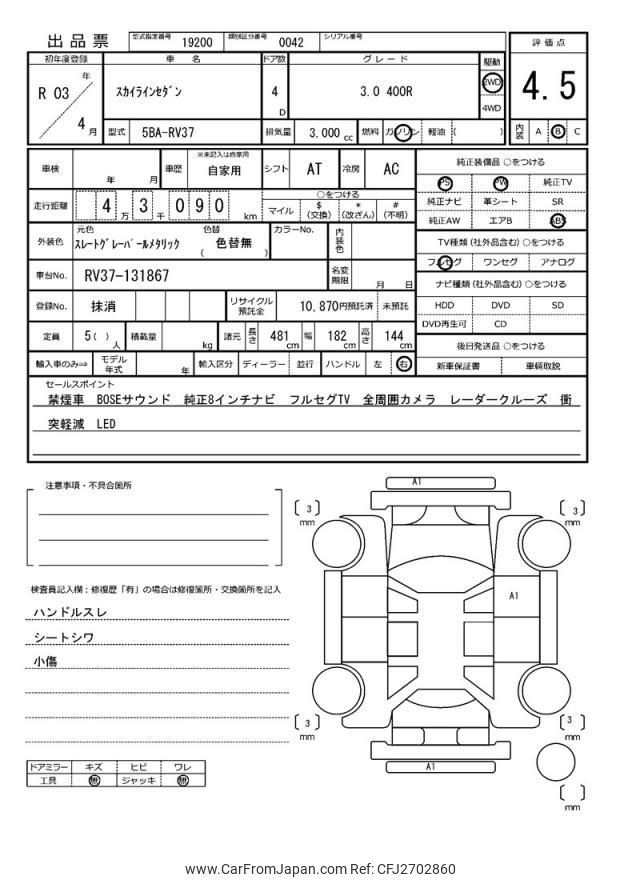 出品票 型式指定番号 19200 類別区分番号 0042 シリアル番号
初年度登録 車 名 ドア数 グレード 駆動 評価点
R 03 年 4 月 スカイラインセダン 4 D 3.0 400R 2WD 4WD 4.5
型式 5BA-RV37 排気量 3,000 cc 燃料 ガソリン 軽油 ( ) 内装 A B C
車検 年 月 車歴 ※未記入は自家用 自家用 シフト AT 冷房 AC
走行距離 4 万 3 千 0 9 0 km ○をつける マイル $ (交換) * (改ざん) # (不明)
外装色 元色 スレートグレーパールメタリック 色替 ( 色替無 ) カラーNo. 内装色
車台No. RV37-131867 名変期限 月 日
登録No. 抹消 リサイクル預託金 10,870円預託済 未預託
定員 5( ) 人 積載量 kg 諸元 長さ 481 cm 幅 182 cm 高さ 144 cm
輸入車のみ⇒ モデル年式 年 輸入区分 ディーラー 並行 ハンドル 左 右
純正装備品 ○をつける
PS PW 純正TV
純正ナビ 革シート SR
純正AW エアB ABS
TV種類 (社外品含む) ○をつける
フルセグ ワンセグ アナログ
ナビ種類 (社外品含む) ○をつける
HDD DVD SD
DVD再生可 CD
後日発送品 ○をつける
新車保証書 車輌取説
セールスポイント
禁煙車 BOSEサウンド 純正8インチナビ フルセグTV 全周囲カメラ レーダークルーズ 衝
突軽減 LED
注意事項・不具合箇所
検査員記入欄:修復歴「有」の場合は修復箇所・交換箇所を記入
ハンドルスレ
シートシワ
小傷
ドアミラー キズ ヒビ ワレ
工具 無 ジャッキ 無
A1
3 mm
3 mm
A1
3 mm
3 mm
A1
mm
www.CarFromJapan.com Ref: CFJ2702860